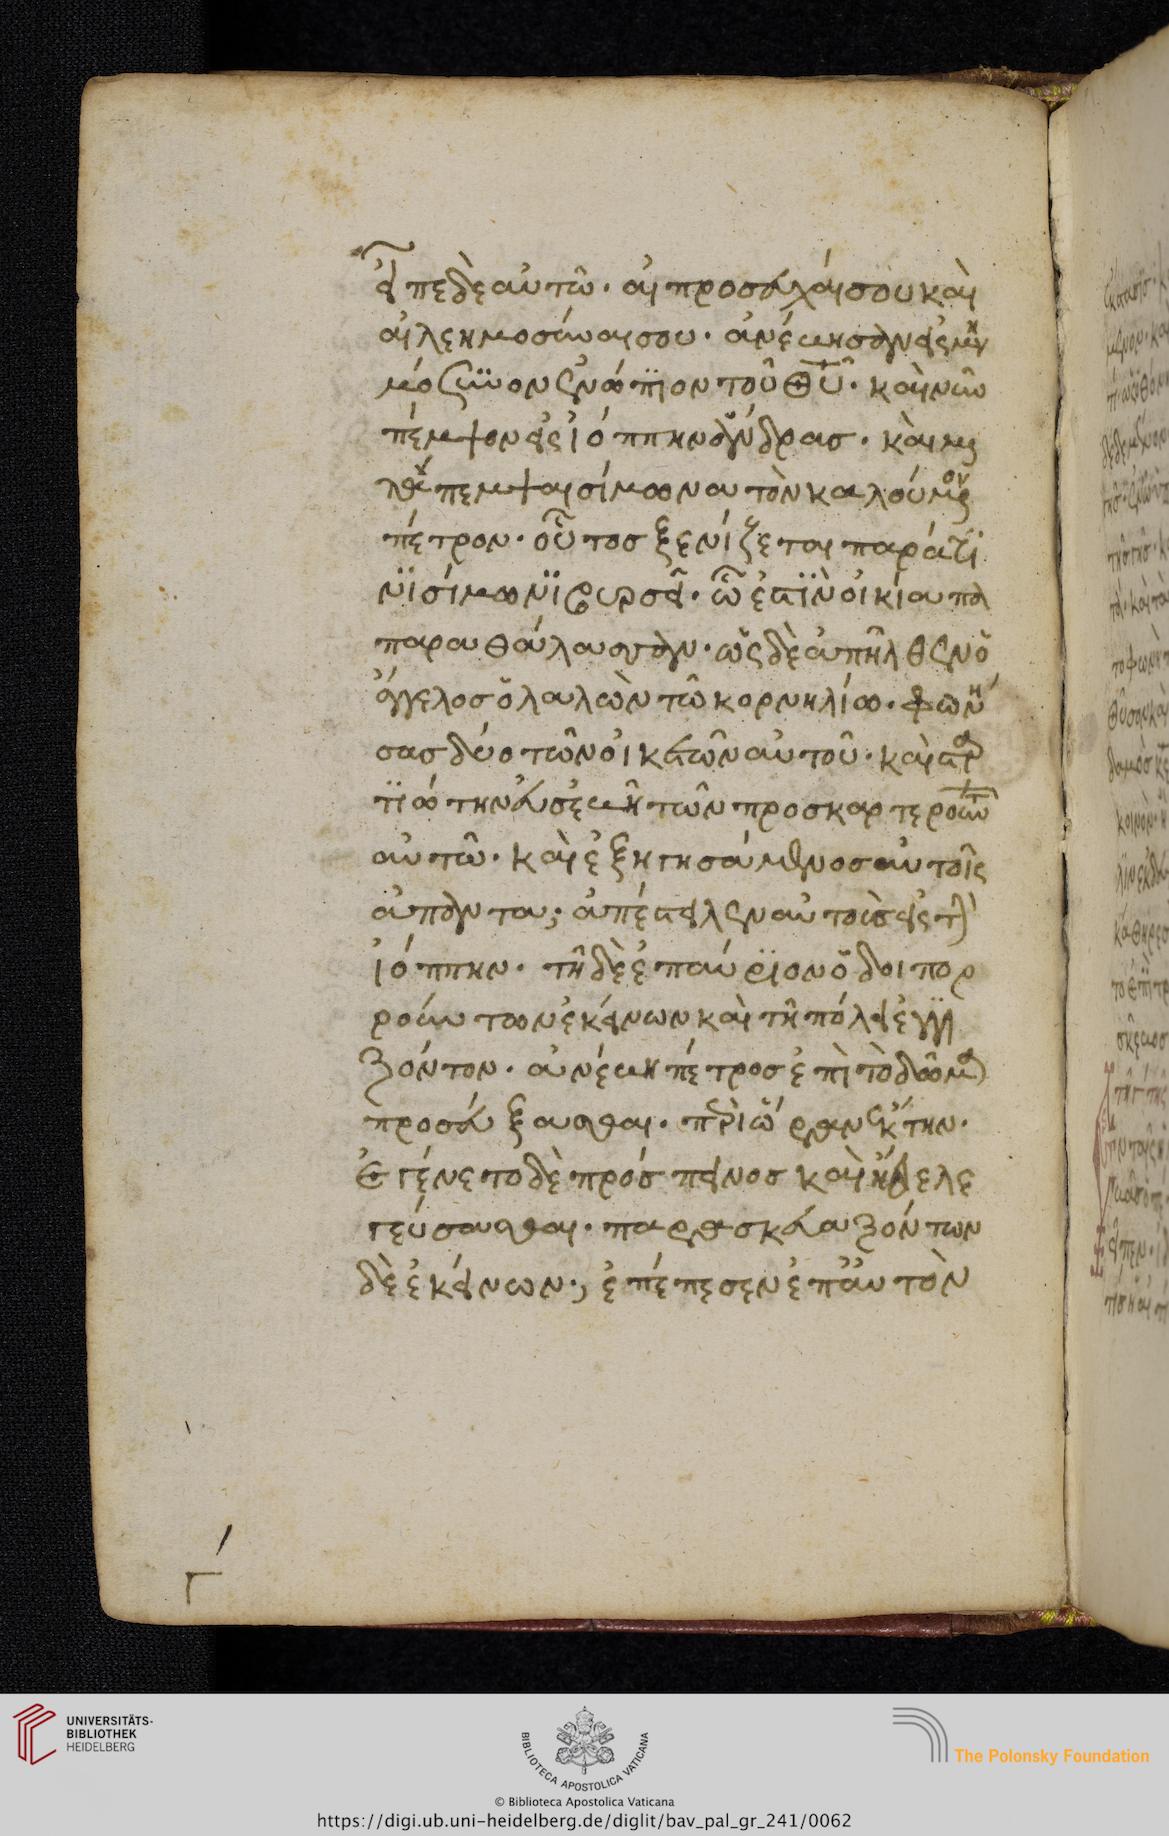 εἶπε δὲ αὐτῶ· αἱ προσευχαί σου καὶ
αἱ λεημοσύναι σου· ἀνέβησαν εἰς μνη
μόσυνον ἐνώπιον τοῦ θυ· καὶ νῦν
πέμψον εἰς ἰόππην ἄνδρας· καὶ με
πεμψαι σίμωνα τὸν καλούμενον
πέτρον· οὗτος ξενίζεται παρά τι
νι σίμωνι βυρσεῖ· ὧ ἐστὶν οἰκία
παρα θάλασσαν· ὡς δὲ ἀπῆλθεν ὁ
ἄγγελος ὁ λαλῶν τῶ κορνηλίω· φωνή
σας δύο τῶν οἰκετῶν αὐτοῦ· καὶ στρα
τιώτην εὐσεβῆ τῶν προσκαρτερούντων
αὐτῶ· καὶ ἐξηγησάμενος αὐτοῖς
ἅπαντα· ἀπέστειλεν αὐτοὺς εἰς τὴν
ἰόππην· τῆ δὲ ἐπαύριον ὁδοιπορ
ρούντων ἐκείνων καὶ τῆ πόλει ἐγγι
ζόντον· ἀνέβη πέτρος ἐπὶ τὸ δῶμα
προσεύξασθαι· περὶ ὥραν ἕκτην·
Ἐγένετο δὲ πρόσπεινος καὶ ἤθελε
γεύσασθαι· παρασκευαζόντων
δὲ ἐκείνων· ἐπέπεσεν ἐπ' αὐτὸν
Γ
UNIVERSITÄTS-
BIBLIOTHEK
HEIDELBERG
BIBLIOTECA APOSTOLICA VATICANA
© Biblioteca Apostolica Vaticana
The Polonsky Foundation
https://digi.ub.uni-heidelberg.de/diglit/bav_pal_gr_241/0062